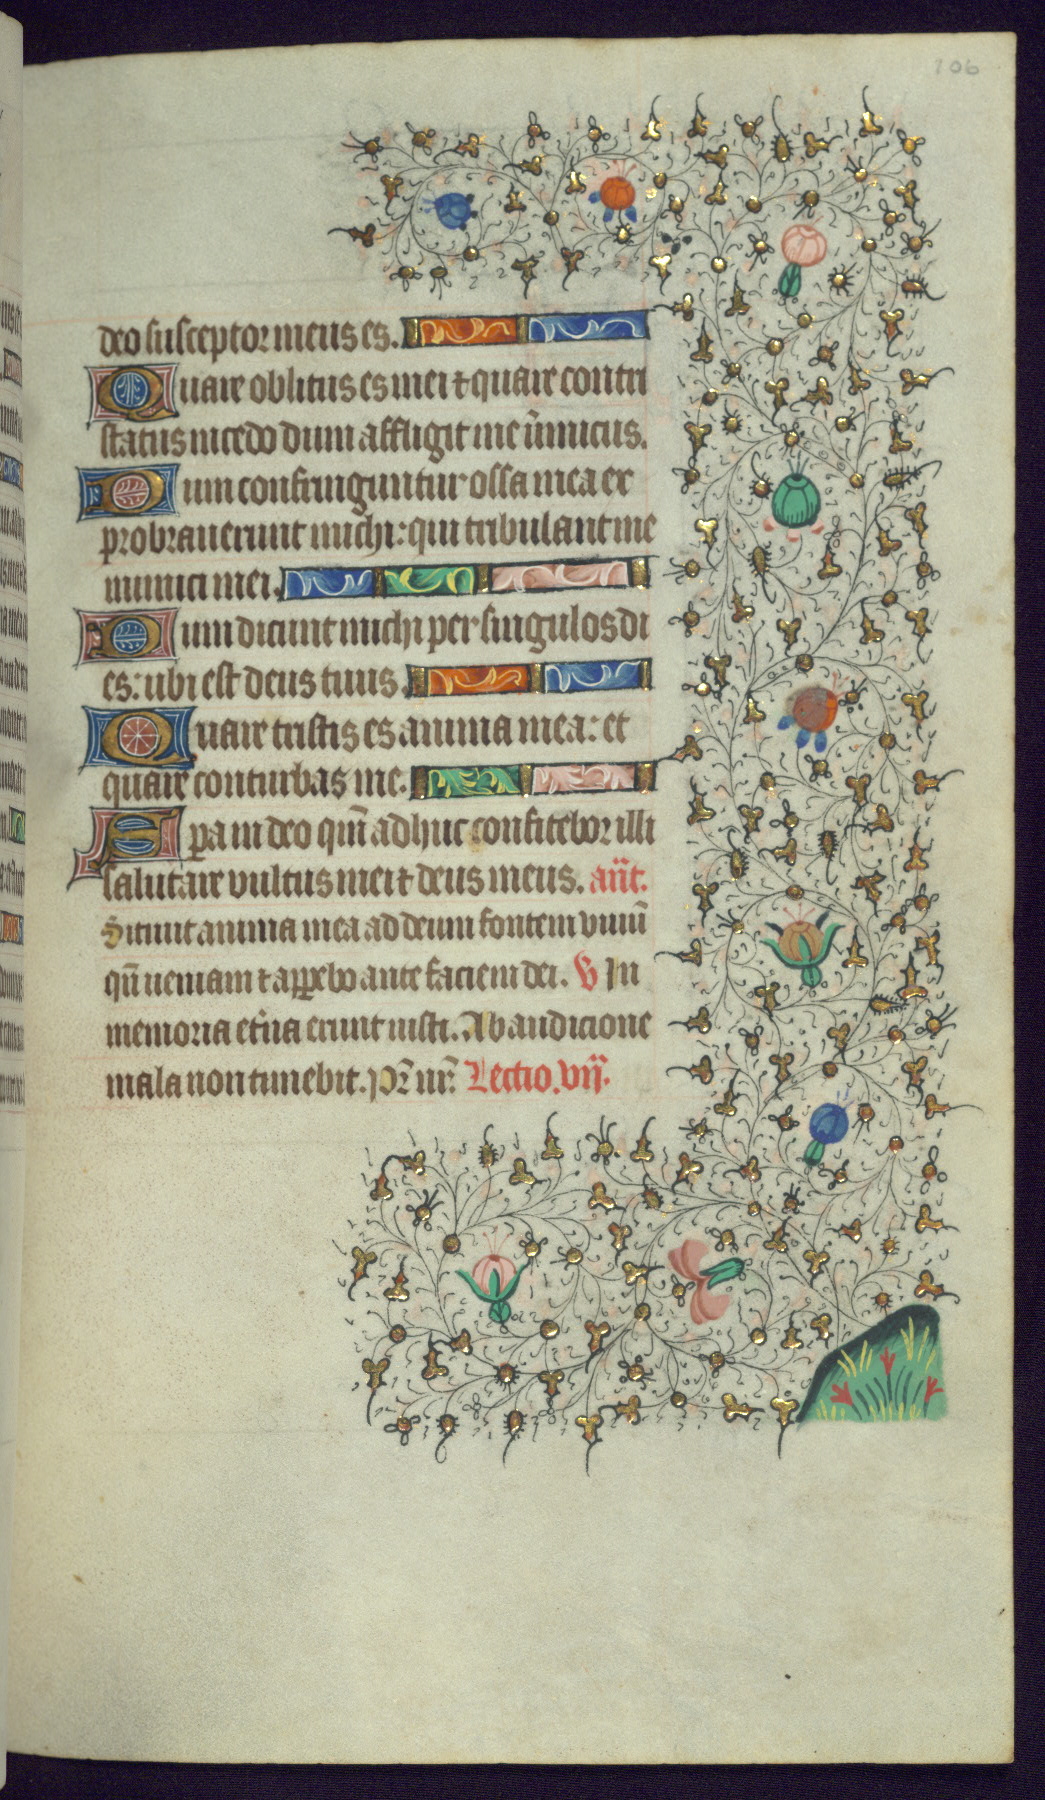 106
deo susceptor meus es.
Quare oblitus es mei ⁊ quare contri
status incedo dum affligit me inimicus.
Dum confringuntur ossa mea ex
probrauerunt michi: qui tribulant me
inimici mei.
Dum dicunt michi per singulos di
es: ubi est deus tuus.
Quare tristis es anima mea: et
quare conturbas me.
Spera in deo qm̄ adhuc confitebor illi
salutare vultus mei ⁊ deus meus. an̄t.
Sitiuit anima mea ad deum fontem viuū
qn̄ ueniam ⁊ apparebo ante faciem dei. V In
memoria et̄na erunt iusti. Ab audicione
mala non timebit. Pr̄ nr̄. Lectio. vij.